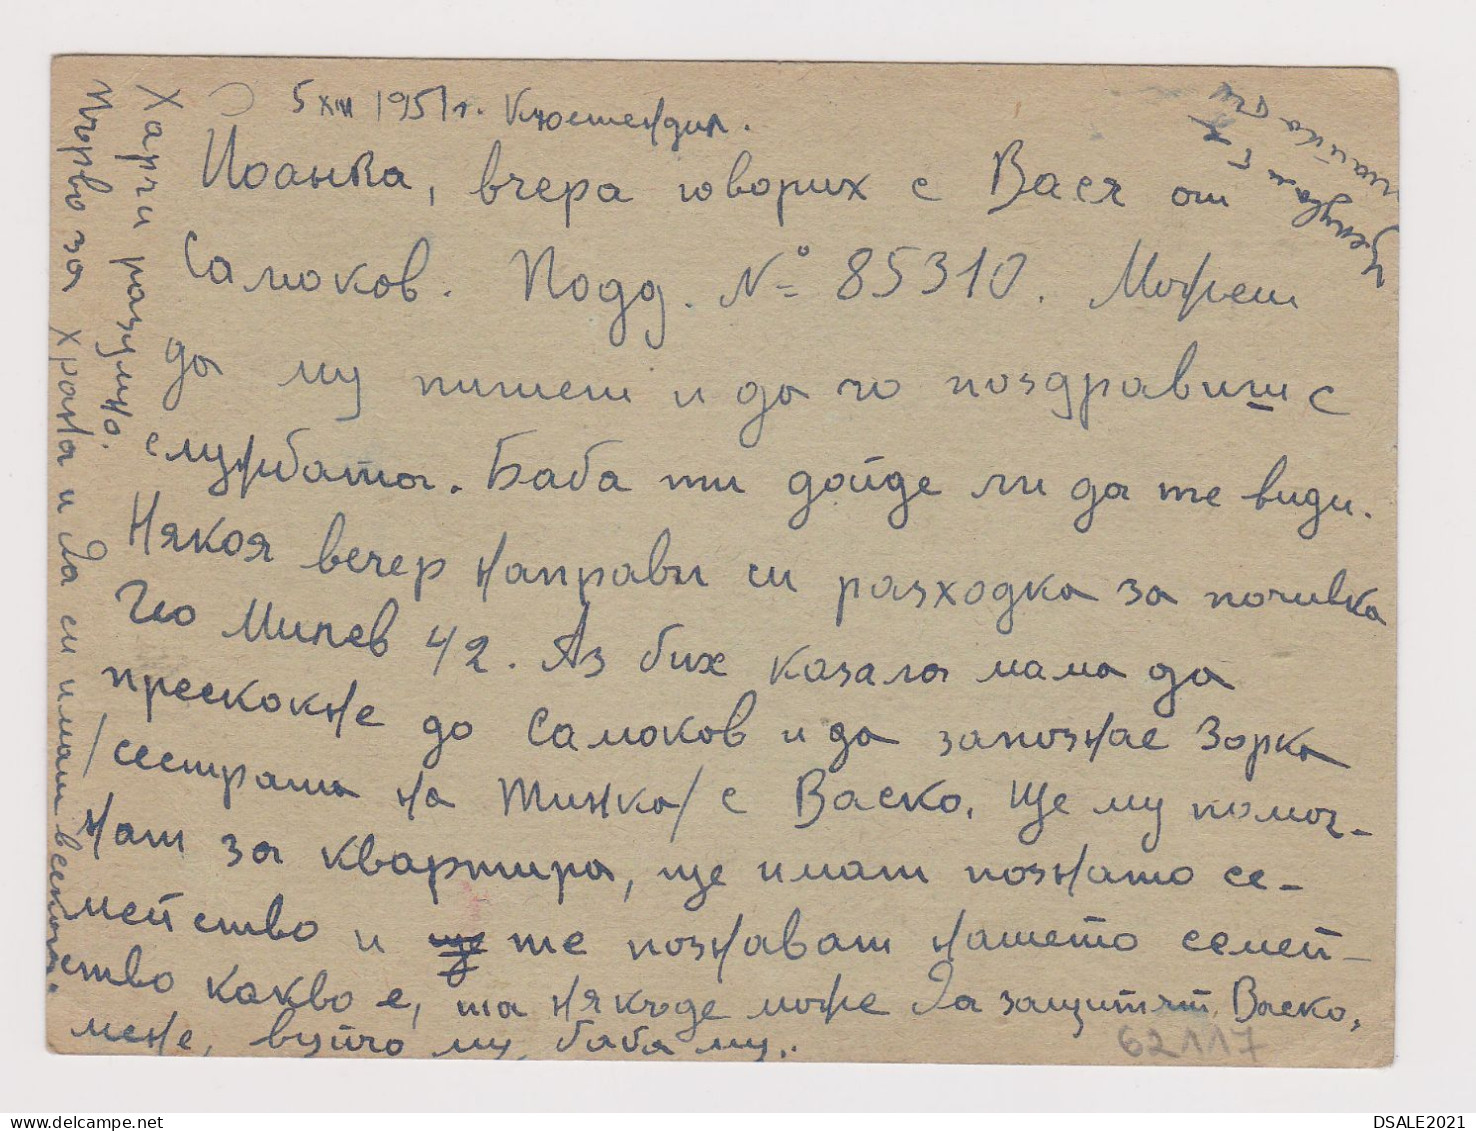 5 XII 1951 г. Кюстендил.
Иоанка, вчера говорих с Вася от
Самоков. Подд. № 85310. Можеш
да му пишеш и да го поздравиш с
службата. Баба ти дойде ли да те види.
Някоя вечер направи си разходка за почивка
Гео Милев 42. Аз бих казала мама да
прескокне до Самоков и да запознае Зорка
/сестрата на Тинка/ с Васко. Ще му помог-
нат за квартира, ще имат познато се-
мейство и те познават нашето семей-
ство какво е, та някъде може да защитят Васко,
мене, вуйчо му, баба му..
Харчи разумно.
Първо за храна и да си имаш
Целувам те
майка ти
62117
DSALE2021